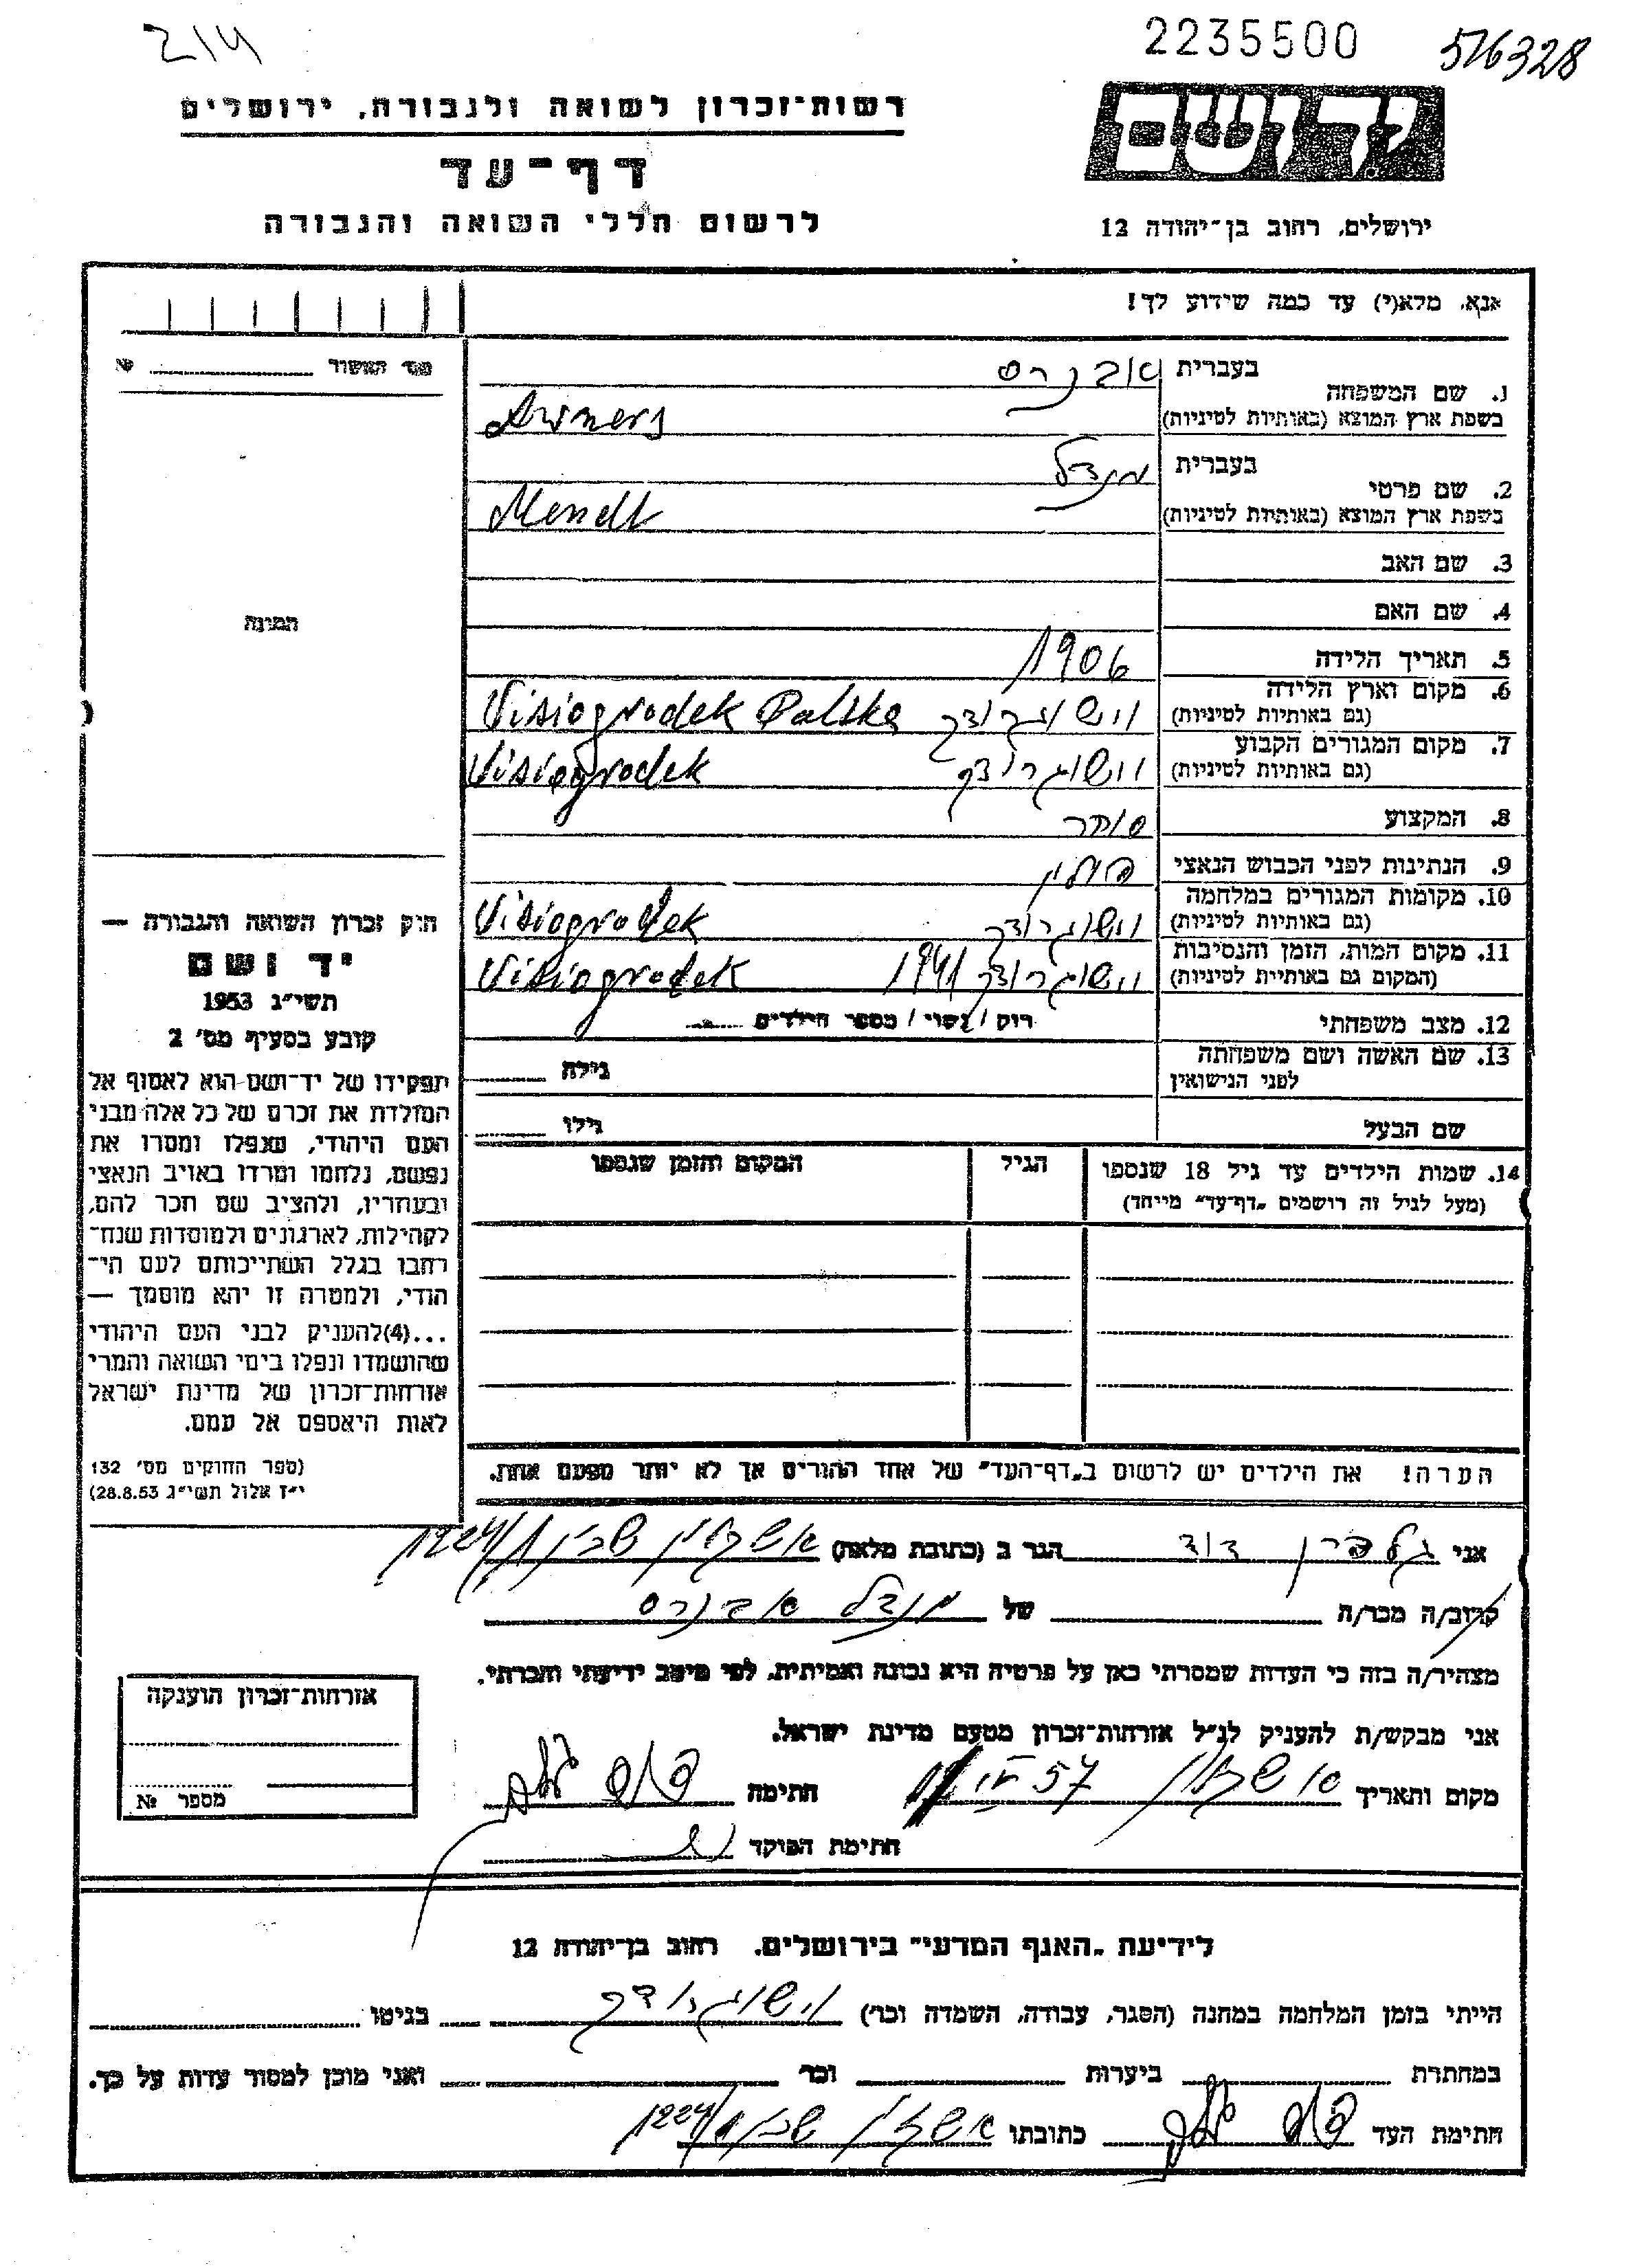 214
2235500
576328
רשות־זכרון לשואה ולגבורה, ירושלים
דף־עד
לרשום חללי השואה והגבורה
יד ושם
ירושלים, רחוב בן־יהודה 12
אנא, מלא(י) עד כמה שידוע לך!
מס׳ האשור №
1. שם המשפחה
בעברית אבנרס
בשפת ארץ המוצא (באותיות לטיניות) Awners
2. שם פרטי
בעברית מנדל
בשפת ארץ המוצא (באותיות לטיניות) Mendl
3. שם האב
4. שם האם
התמונה
5. תאריך הלידה 1906
6. מקום וארץ הלידה
(גם באותיות לטיניות) וישוגרודק Visiogrodek Polska
7. מקום המגורים הקבוע
(גם באותיות לטיניות) וישוגרודק Visiogrodek
8. המקצוע סוחר
9. הנתינות לפני הכבוש הנאצי פולין
10. מקומות המגורים במלחמה
(גם באותיות לטיניות) וישוגרודק Visiogrodek
11. מקום המות, הזמן והנסיבות
(המקום גם באותיות לטיניות) וישוגרודק 1941 Visiogrodek
12. מצב משפחתי רווק / נשוי / מספר הילדים
13. שם האשה ושם משפחתה
לפני הנישואין גילה
שם הבעל גילו
14. שמות הילדים עד גיל 18 שנספו הגיל המקום והזמן שנספו
(מעל לגיל זה רושמים „דף־עד" מייחד)
הערה! את הילדים יש לרשום ב„דף־העד" של אחד ההורים אך לא יותר מפעם אחת.
חוק זכרון השואה והגבורה —
יד ושם
תשי״ג 1953
קובע בסעיף מס׳ 2
תפקידו של יד־ושם הוא לאסוף אל
המולדת את זכרם של כל אלה מבני
העם היהודי, שנפלו ומסרו את
נפשם, נלחמו ומרדו באויב הנאצי
ובעוזריו, ולהציב שם וזכר להם,
לקהילות, לארגונים ולמוסדות שנח־
רחבו בגלל השתייכותם לעם הי־
הודי, ולמטרה זו יהא מוסמך —
...(4) להעניק לבני העם היהודי
שהושמדו ונפלו בימי השואה והמרי
אזרחות־זכרון של מדינת ישראל
לאות היאספם אל עמם.
(ספר החוקים מס׳ 132
י״ז אלול תשי״ג 28.8.53)
אני גלפרין דוד הגר ב (כתובת מלאה) אשקלון שכון 1224/1
קרוב/ה מכר/ה של מנדל אבנרס
מצהיר/ה בזה כי העדות שמסרתי כאן על פרטיה היא נכונה ואמיתית, לפי מיטב ידיעתי והכרתי.
אני מבקש/ת להעניק לנ״ל אזרחות־זכרון מטעם מדינת ישראל.
מקום ותאריך אשקלון 57 חתימה
חתימת הפוקד
אזרחות־זכרון הוענקה
מספר №
לידיעת „האגף המדעי" בירושלים, רחוב בן־יהודה 12
הייתי בזמן המלחמה במחנה (הסגר, עבודה, השמדה וכר׳) וישוגרודק בגיטו
במחתרת ביערות וכר ואני מוכן למסור עדות על כך.
חתימת העד כתובתו אשקלון שכון 1224/1